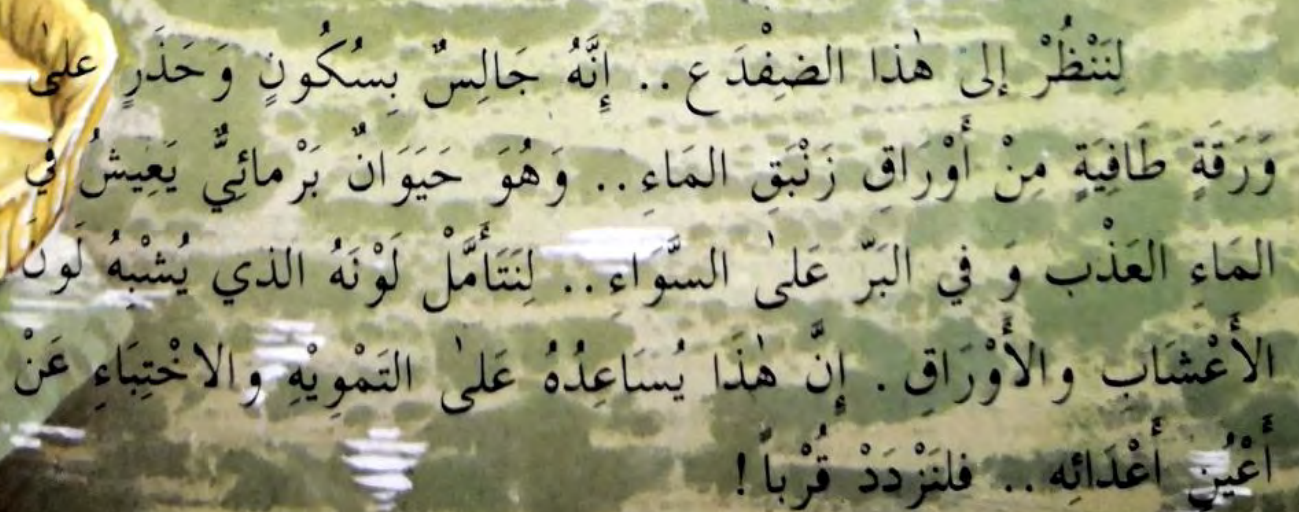 لِنَنْظُرْ إلى هٰذا الضِفْدَع .. إِنَّهُ جَالِسٌ بِسُكُونٍ وَحَذَرٍ على
وَرَقَةٍ طَافِيَةٍ مِنْ أَوْرَاقِ زَنْبَقِ المَاءِ .. وَهُوَ حَيَوَانٌ بَرْمائِيٌّ يَعِيشُ في
المَاءِ العَذْب وَ في البَرّ عَلىٰ السَّوَاءِ .. لِنَتَأَمَّلْ لَوْنَهُ الذي يُشْبِهُ لَونَ
الأَعْشَابِ والأَوْرَاقِ . إِنَّ هٰذَا يُسَاعِدُهُ عَلىٰ التَمْوِيْهِ والاخْتِبَاءِ عَنْ
أَعْيُنِ أَعْدَائِه .. فلنَزْدَدْ قُرْباً !